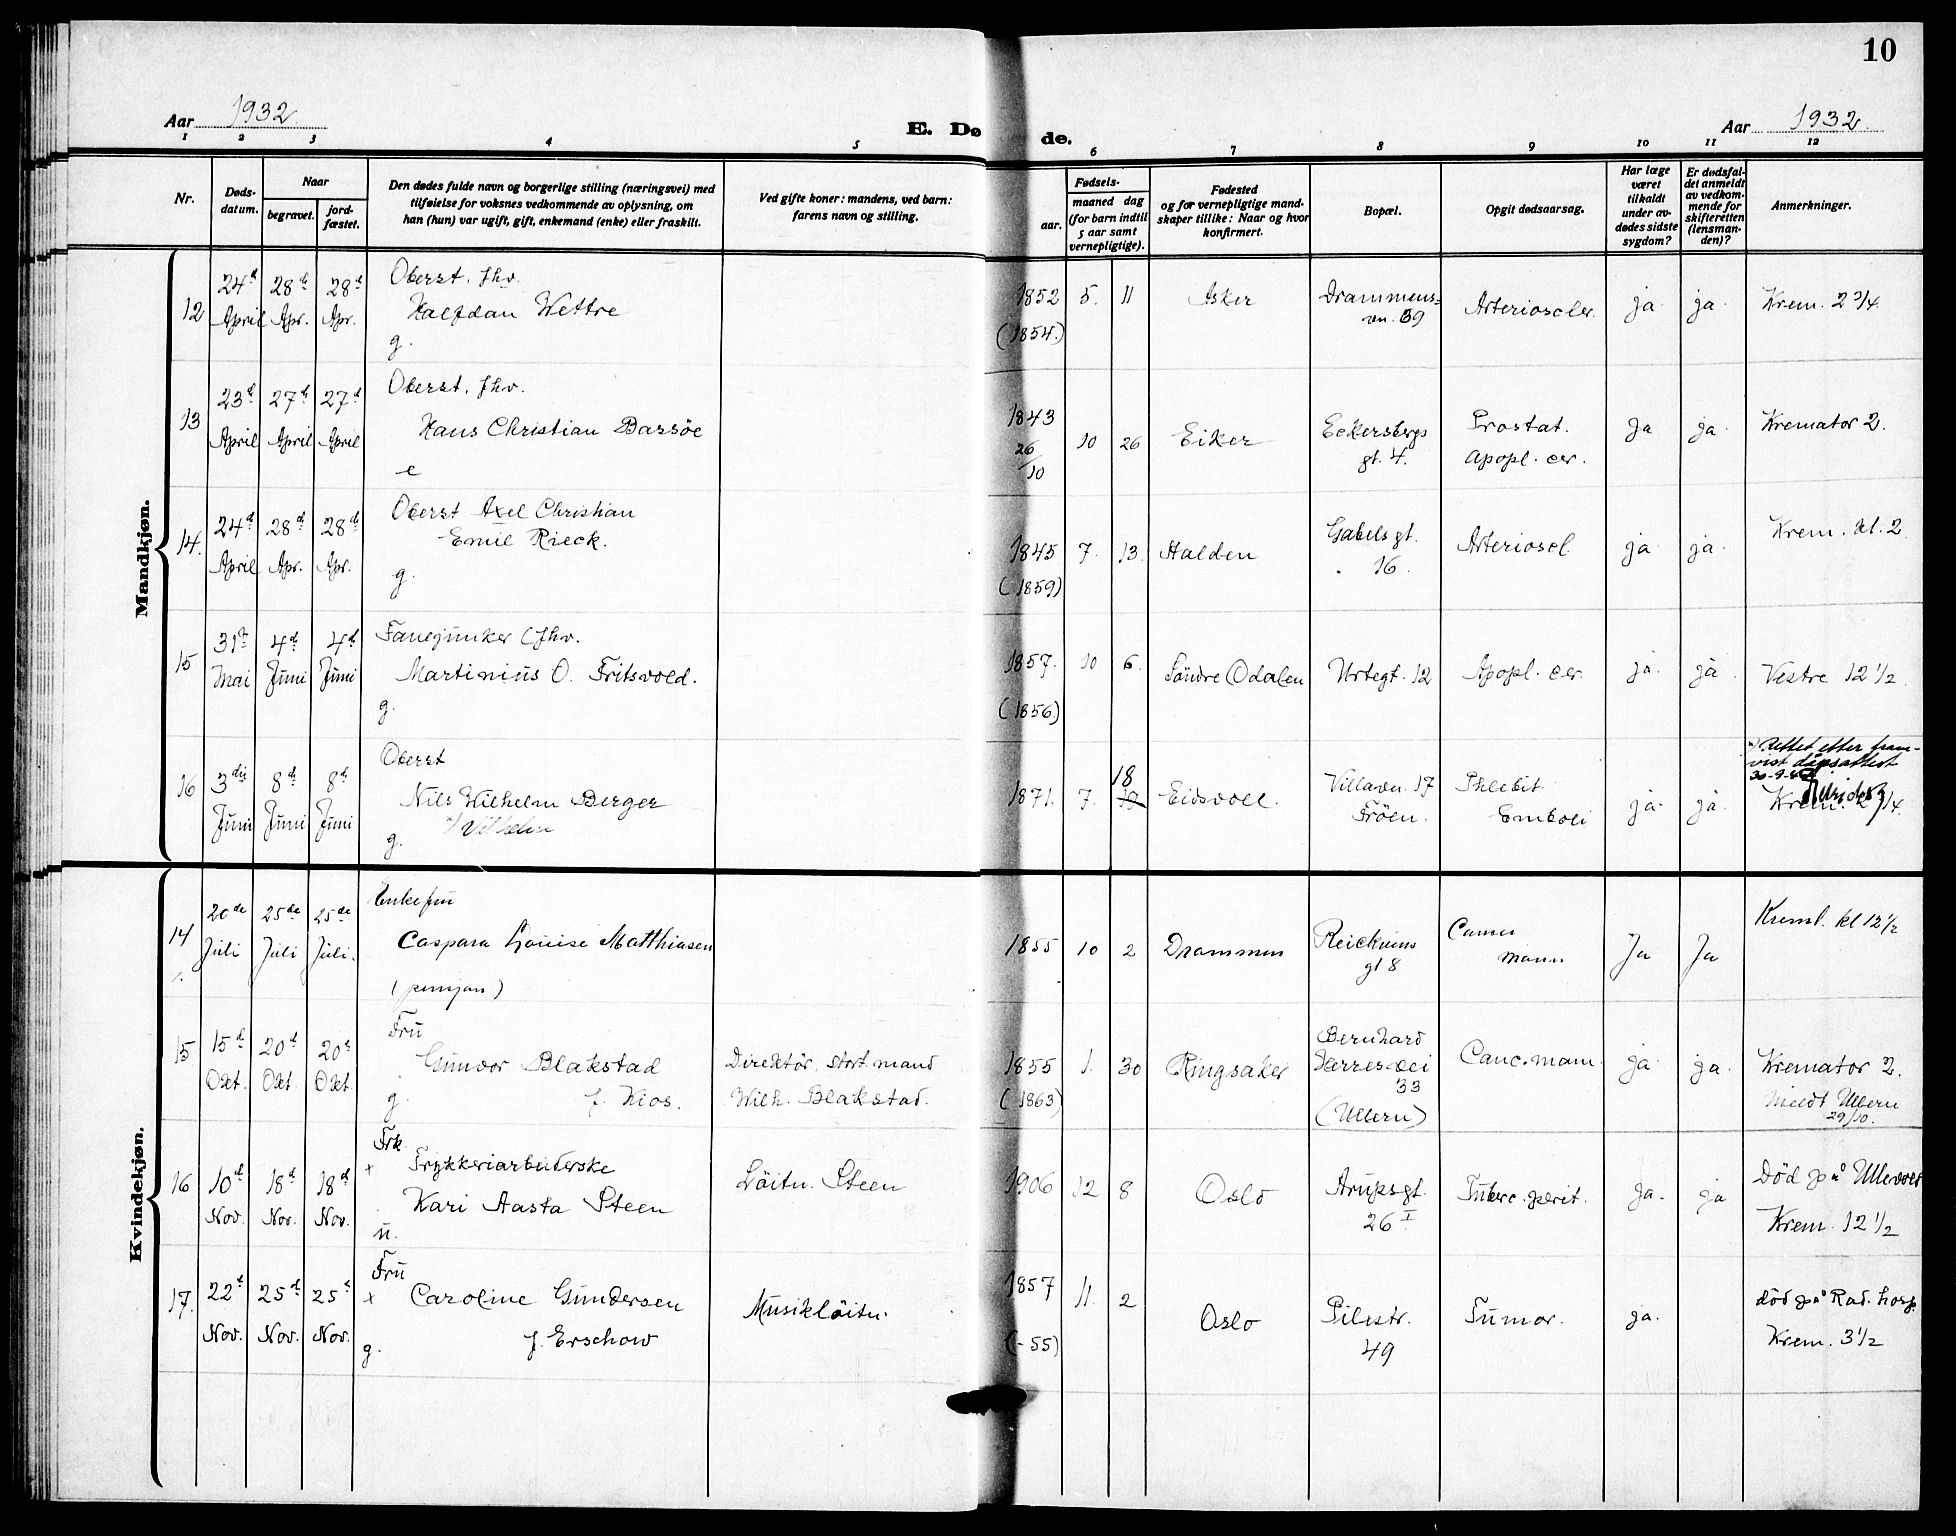 10
Aar 1932
E. Dø de.
Aar 1932
1 2 3 4 5 6 7 8 9 10 11 12
Nr.
Døds-
datum.
Naar
begravet.
jord-
fæstet.
Den dødes fulde navn og borgerlige stilling (næringsvei) med
tilføielse for voksnes vedkommende av oplysning, om
han (hun) var ugift, gift, enkemand (enke) eller fraskilt.
Ved gifte koner: mandens, ved barn:
farens navn og stilling.
Fødsels-
aar.
maaned dag
(for barn indtil
5 aar samt
vernepligtige).
Fødested
og for vernepligtige mand-
skaper tillike: Naar og hvor
konfirmert.
Bopæl.
Opgit dødsaarsag.
Har læge
været
tilkaldt
under av-
dødes sidste
sygdom?
Er dødsfal-
det anmeldt
av vedkom-
mende for
skifteretten
(lensman-
den)?
Anmerkninger.
Mandkjøn.
12 24d April 28de Apr. 28d Apr.
Oberst, fhv.
Halfdan Wettre
g.
1852 5. 11
(1854.)
Asker
Drammens-
vn. 89
Arterioscler. ja. ja. Krem. 2 3/4.
13 23d April 27de April 27d April
Oberst, fhv.
Hans Christian Barsöe
e
1843
26/10
10 26 Eiker
Eckersbergs
gt. 4.
Prostat.
Apopl. cer.
ja ja. Kremator 2.
14. 24d April 28d Apr. 28de Apr.
Oberst Axel Christian
Emil Rieck.
g.
1845 7. 13.
(1859)
Halden
Gabels gt.
16.
Arterioscl. ja. ja. Krem. kl. 2
15 31te Mai 4d Juni 4d Juni
Fanejunker (fhv.
Martinius O. Fritsvold.
g.
1857. 10 6.
(1856)
Söndre Odalen Urtegt. 12 Apopl. cer. ja. ja Vestre 12 1/2
16 3die Juni 8d Juni 8d Juni
Oberst
Nils Wilhelm Berger
x) Vilhelm
g.
1871. 7. 18
19
Eidsvoll.
Villavn. 17
Fröen.
Phlebit.
Emboli
ja. ja.
x) Rettet etter fram-
vist dåpsattest
Krem. 2 1/4.
Kvindekjøn.
14 20de Juli 25de Juli 25de Juli.
Enkefru
Caspara Louise Matthiasen
(pensjon)
1855 10 2 Drammen
Reichweins
gt 8
Cancer
mam.
Ja Ja Kreml. kl 12 1/2
15 15d Okt. 20d Okt 20d Okt
Fru
Gunvor Blakstad
g. f. Kiøs.
Direktör, stort. mand
Wilh. Blakstad.
1855 1. 30
(1863)
Ringsaker
Bernhard
Herres vei
33
(Ullern)
Canc. mam. ja. ja. Kremator 2.
meldt Ullern
29/10.
16 10d Nov. 18d Nov. 18d Nov.
Frk
x Trykkeriarbeiderske
Kari Aasta Steen
u.
Löitn. Steen
1906 12 8 Oslo
Arupsgt.
26 I
Tuberc. perit. ja. ja
Död på Ullevoll
Krem. 12 1/2
17. 22d Nov. 25d Nov. 25d Nov.
Fru
x Caroline Gundersen
g. f. Erschow
Musiklöitn.
1857 11. 2
(-55)
Oslo
Pilestr.
49
Tumor. ja.
död på Rad. hosp.
Krem. 3 1/2